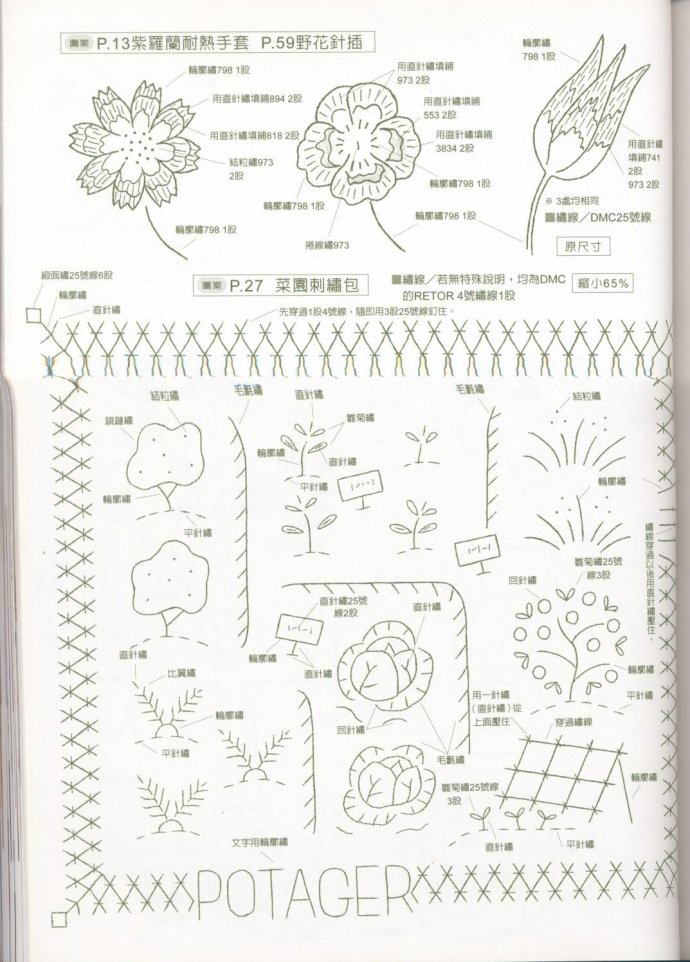 圖案 P.13紫羅蘭耐熱手套 P.59野花針插
輪廓繡798 1股
用直針繡填鋪894 2股
用直針繡填鋪818 2股
結粒繡973
2股
輪廓繡798 1股
用直針繡填鋪
973 2股
用直針繡填鋪
553 2股
用直針繡填鋪
3834 2股
輪廓繡798 1股
輪廓繡798 1股
捲線繡973
輪廓繡798 1股
輪廓繡
798 1股
用直針繡
填鋪741
2股
973 2股
※ 3處均相同
■繡線／DMC25號線
原尺寸
緞面繡25號線6股
輪廓繡
直針繡
圖案 P.27 菜園刺繡包
■繡線／若無特殊說明，均為DMC
的RETOR 4號繡線1股
縮小65%
先穿過1股4號線，隨即用3股25號線釘住。
結粒繡
鎖鏈繡
輪廓繡
平針繡
毛氈繡
直針繡
雛菊繡
輪廓繡
直針繡
平針繡
毛氈繡
結粒繡
輪廓繡
繡線穿過以後用直針繡壓住。
雛菊繡25號
線3股
回針繡
輪廓繡
平針繡
直針繡25號
線2股
直針繡
輪廓繡
直針繡
回針繡
毛氈繡
直針繡
比翼繡
輪廓繡
平針繡
用一針繡
(直針繡)從
上面壓住
穿過繡線
輪廓繡
雛菊繡25號線
3股
直針繡
平針繡
文字用輪廓繡
POTAGER